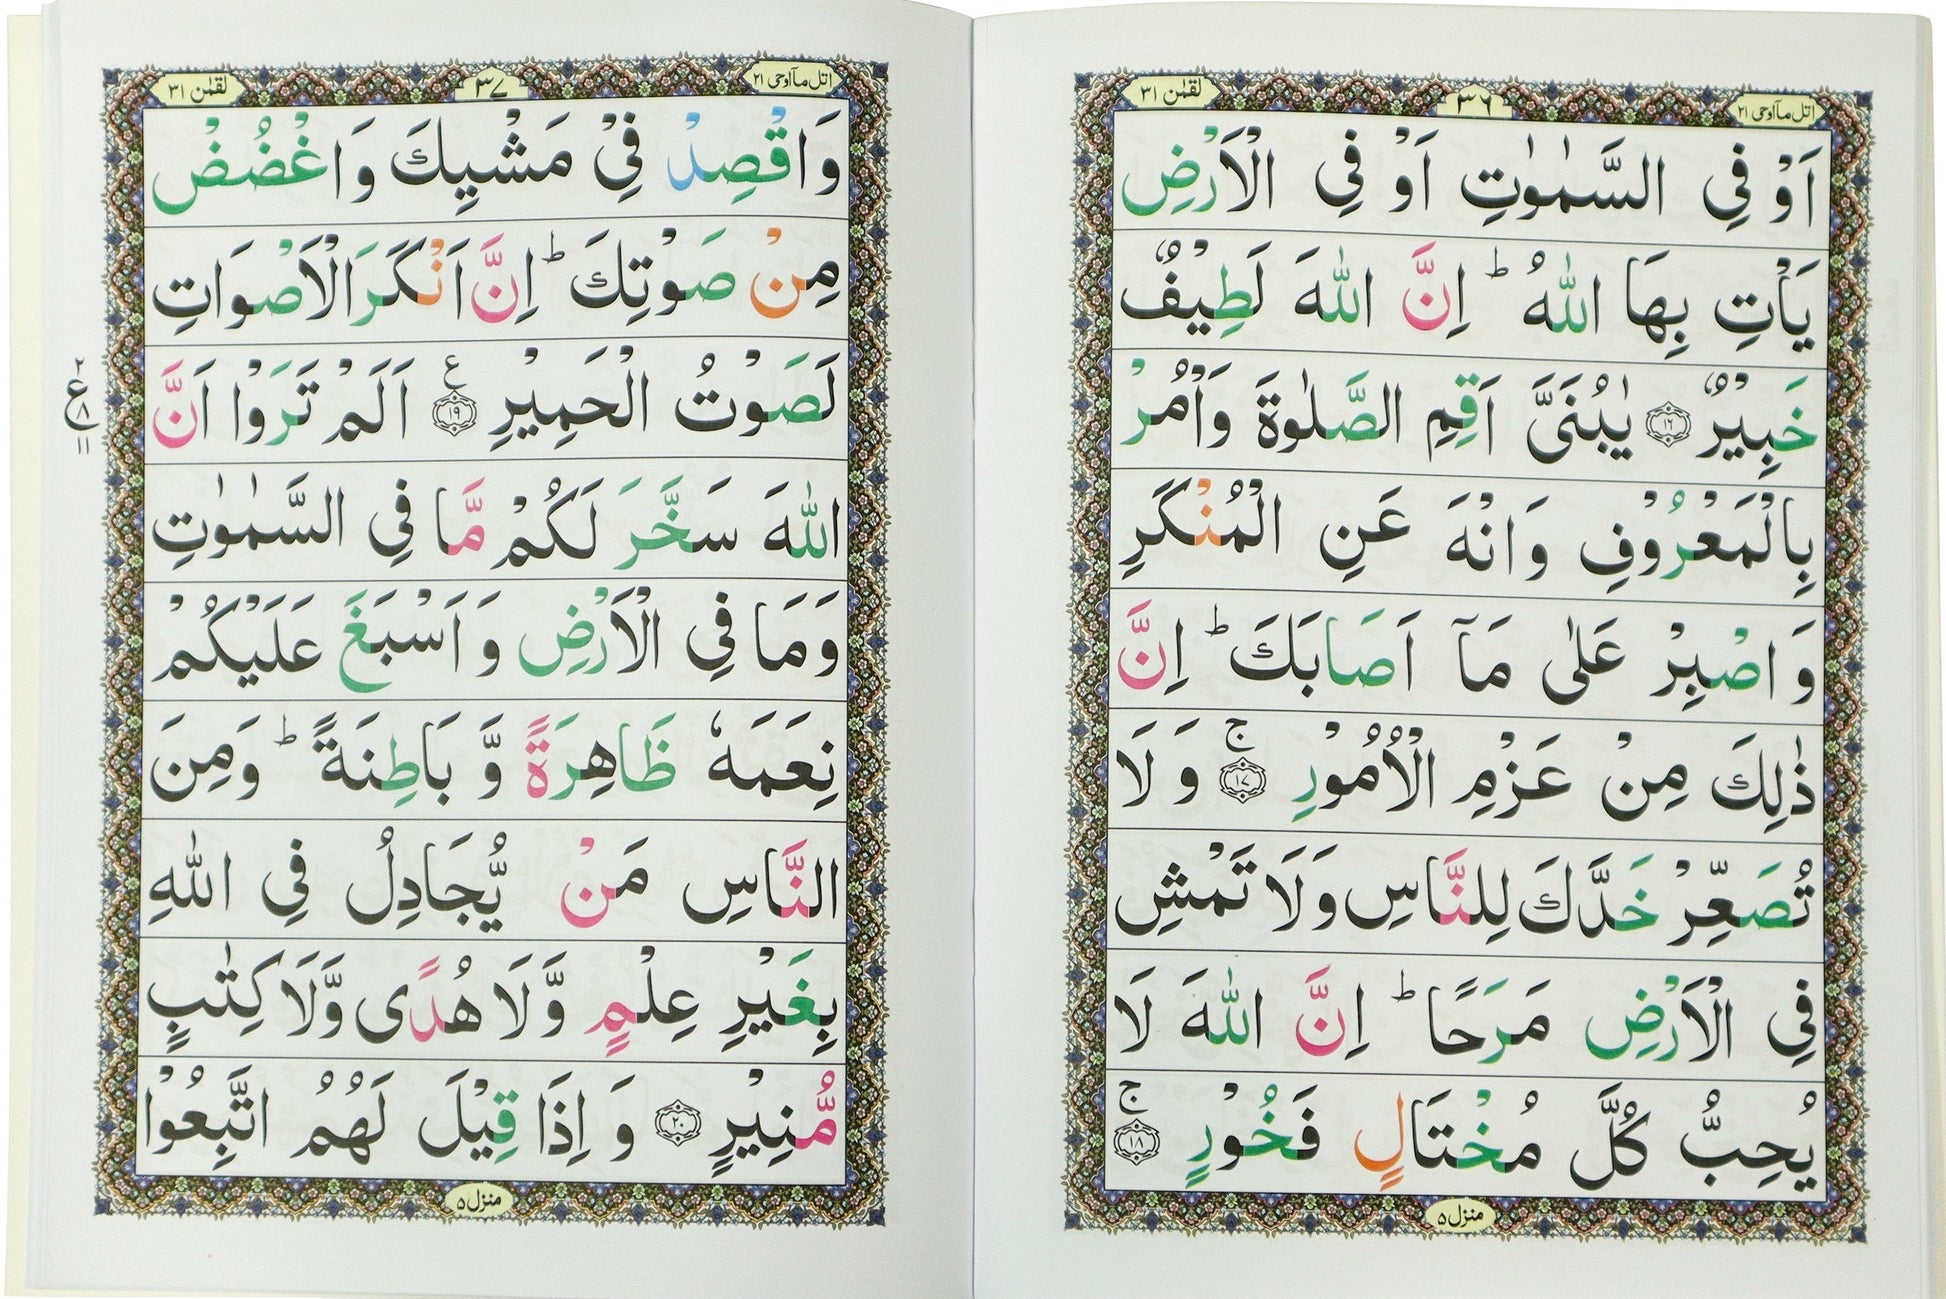 اتل مآ اوحی ۲۱
۳۶
لقمٰن ۳۱
اَوْ فِی السَّمٰوٰتِ اَوْ فِی الْاَرْضِ
یَاْتِ بِهَا اللّٰهُ ؕ اِنَّ اللّٰهَ لَطِیْفٌ
خَبِیْرٌ ۱۶ یٰبُنَیَّ اَقِمِ الصَّلٰوةَ وَاْمُرْ
بِالْمَعْرُوْفِ وَانْهَ عَنِ الْمُنْكَرِ
وَاصْبِرْ عَلٰی مَاۤ اَصَابَكَ ؕ اِنَّ
ذٰلِكَ مِنْ عَزْمِ الْاُمُوْرِ ۚ ۱۷ وَلَا
تُصَعِّرْ خَدَّكَ لِلنَّاسِ وَلَا تَمْشِ
فِی الْاَرْضِ مَرَحًا ؕ اِنَّ اللّٰهَ لَا
یُحِبُّ كُلَّ مُخْتَالٍ فَخُوْرٍ ۚ ۱۸
منزل ۵
اتل مآ اوحی ۲۱
۳۷
لقمٰن ۳۱
وَاقْصِدْ فِیْ مَشْیِكَ وَاغْضُضْ
مِنْ صَوْتِكَ ؕ اِنَّ اَنْكَرَ الْاَصْوَاتِ
لَصَوْتُ الْحَمِیْرِ ۱۹ ع اَلَمْ تَرَوْا اَنَّ
۲
ع
۸
۱۱
اللّٰهَ سَخَّرَ لَكُمْ مَّا فِی السَّمٰوٰتِ
وَمَا فِی الْاَرْضِ وَاَسْبَغَ عَلَیْكُمْ
نِعَمَهٗ ظَاهِرَةً وَّبَاطِنَةً ؕ وَمِنَ
النَّاسِ مَنْ یُّجَادِلُ فِی اللّٰهِ
بِغَیْرِ عِلْمٍ وَّلَا هُدًی وَّلَا كِتٰبٍ
مُّنِیْرٍ ۲۰ وَاِذَا قِیْلَ لَهُمُ اتَّبِعُوْا
منزل ۵